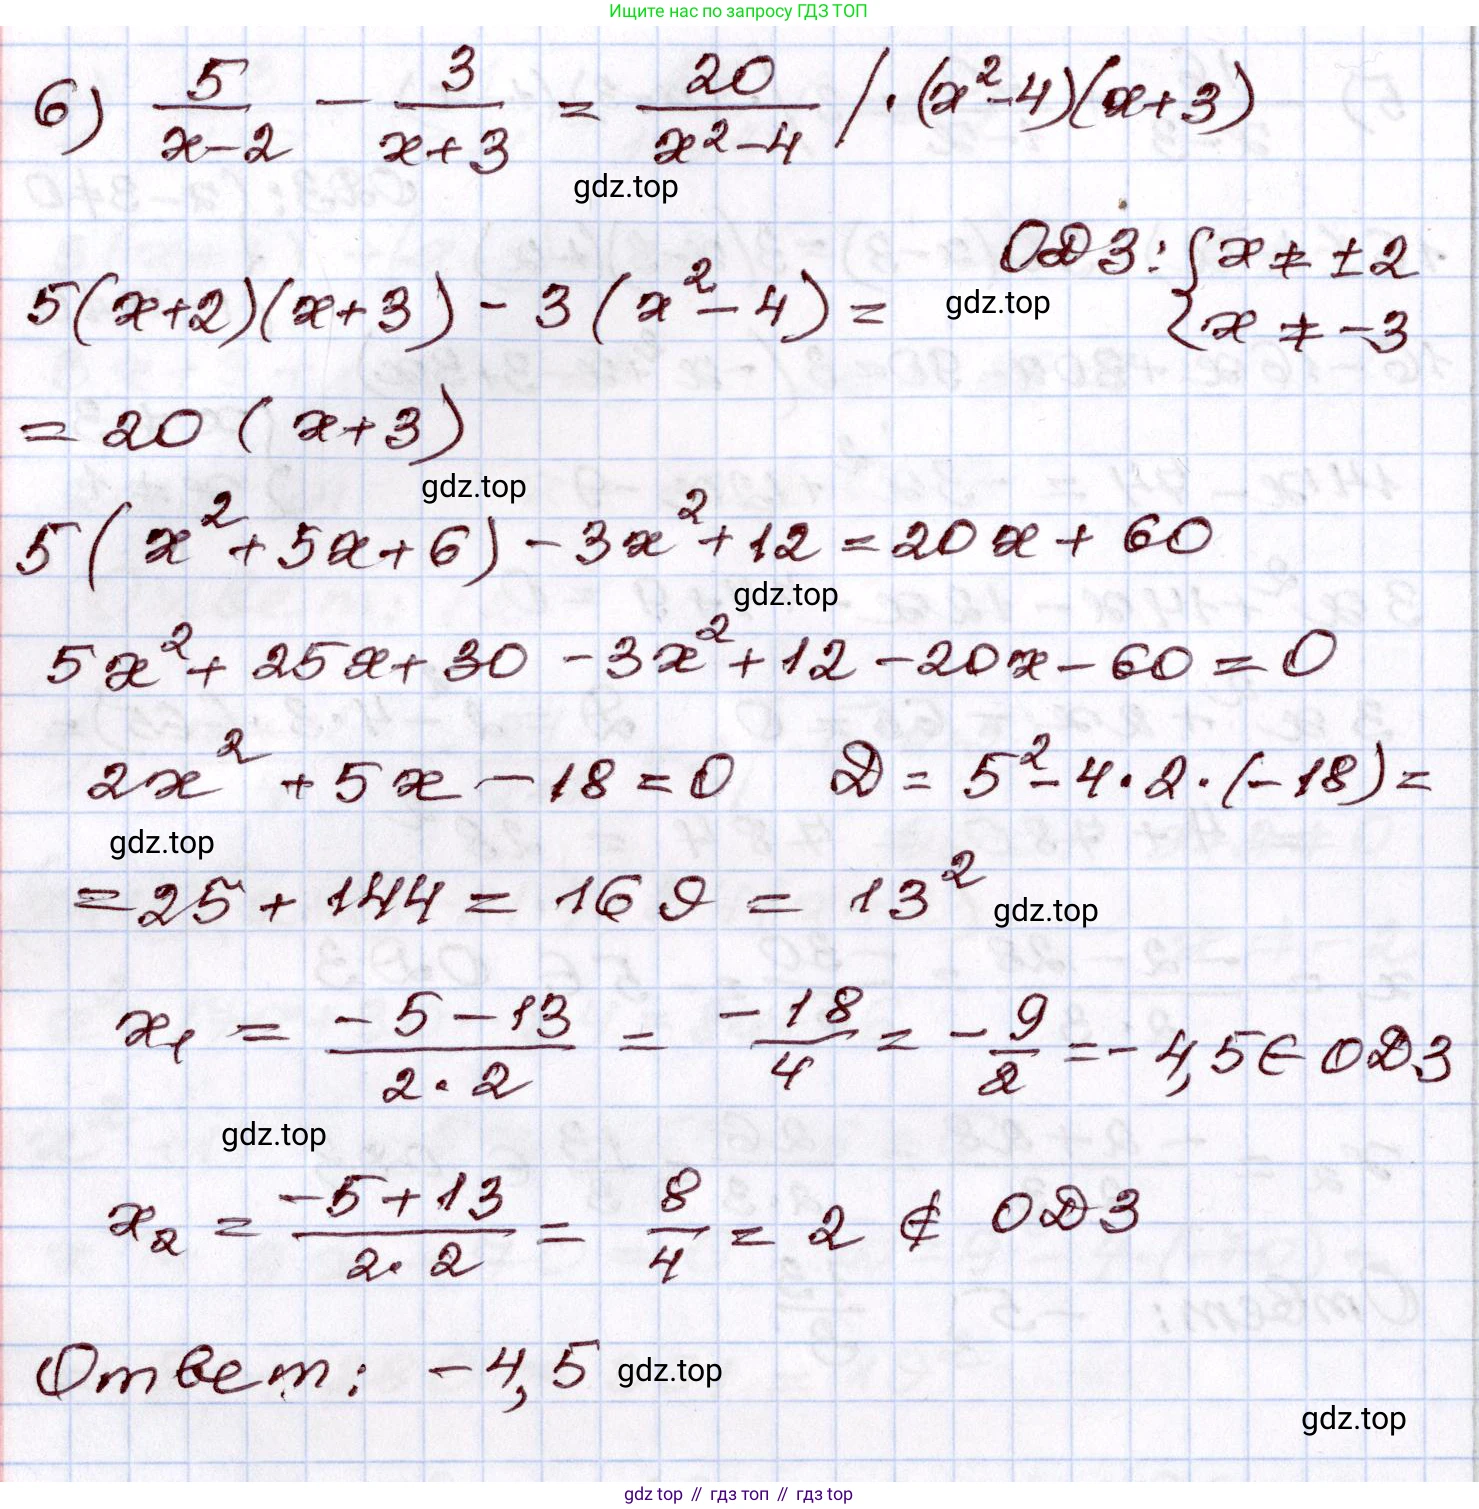 Ищите нас по запросу ГДЗ ТОП
6) 5/(x-2) - 3/(x+3) = 20/(x²-4) / · (x²-4)(x+3)
gdz.top
ОДЗ: { x ≠ ±2
5(x+2)(x+3) - 3(x²-4) =
gdz.top
x ≠ -3
= 20 (x+3)
gdz.top
5(x²+5x+6) - 3x²+12 = 20x + 60
gdz.top
5x² + 25x + 30 - 3x² + 12 - 20x - 60 = 0
2x² + 5x - 18 = 0 D = 5² - 4·2·(-18) =
gdz.top
= 25 + 144 = 169 = 13²
gdz.top
x₁ = (-5-13)/(2·2) = -18/4 = -9/2 = -4,5 ∈ ОДЗ
gdz.top
x₂ = (-5+13)/(2·2) = 8/4 = 2 ∉ ОДЗ
Ответ: -4,5
gdz.top
gdz.top
gdz top // гдз топ // гдз top